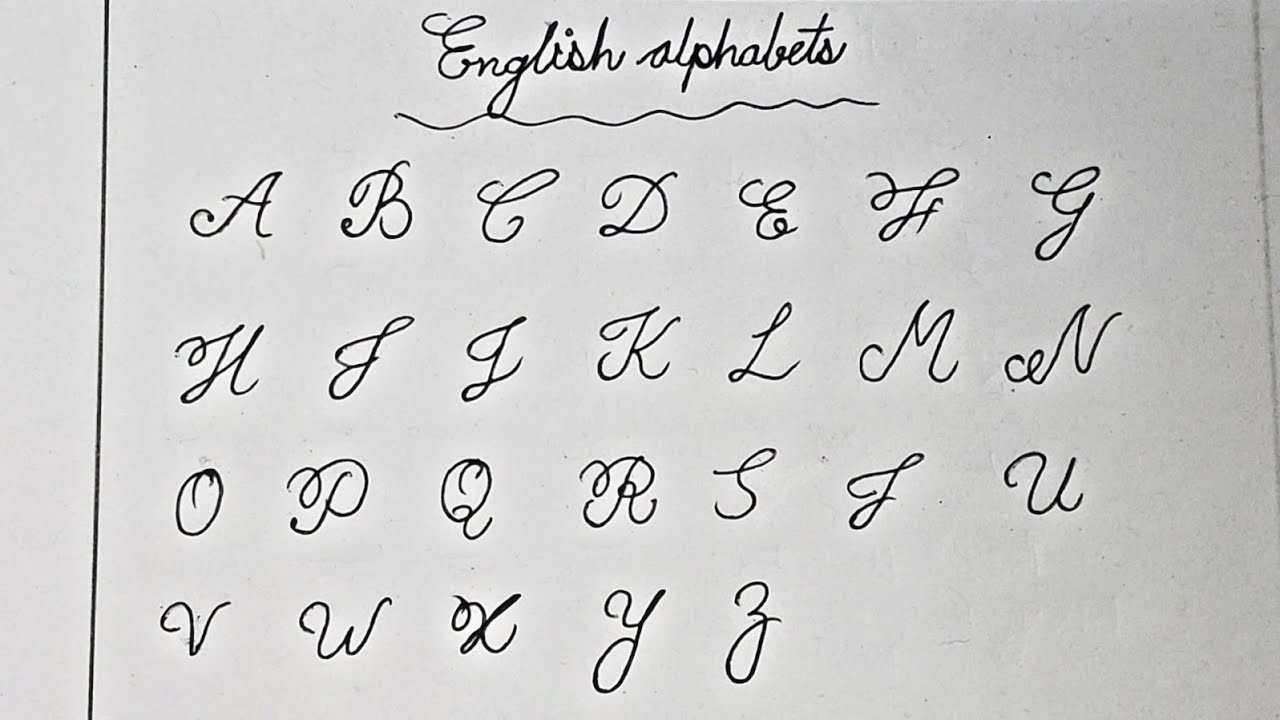 English alphabets
A B C D E F G
H I J K L M N
O P Q R S T U
V W X Y Z